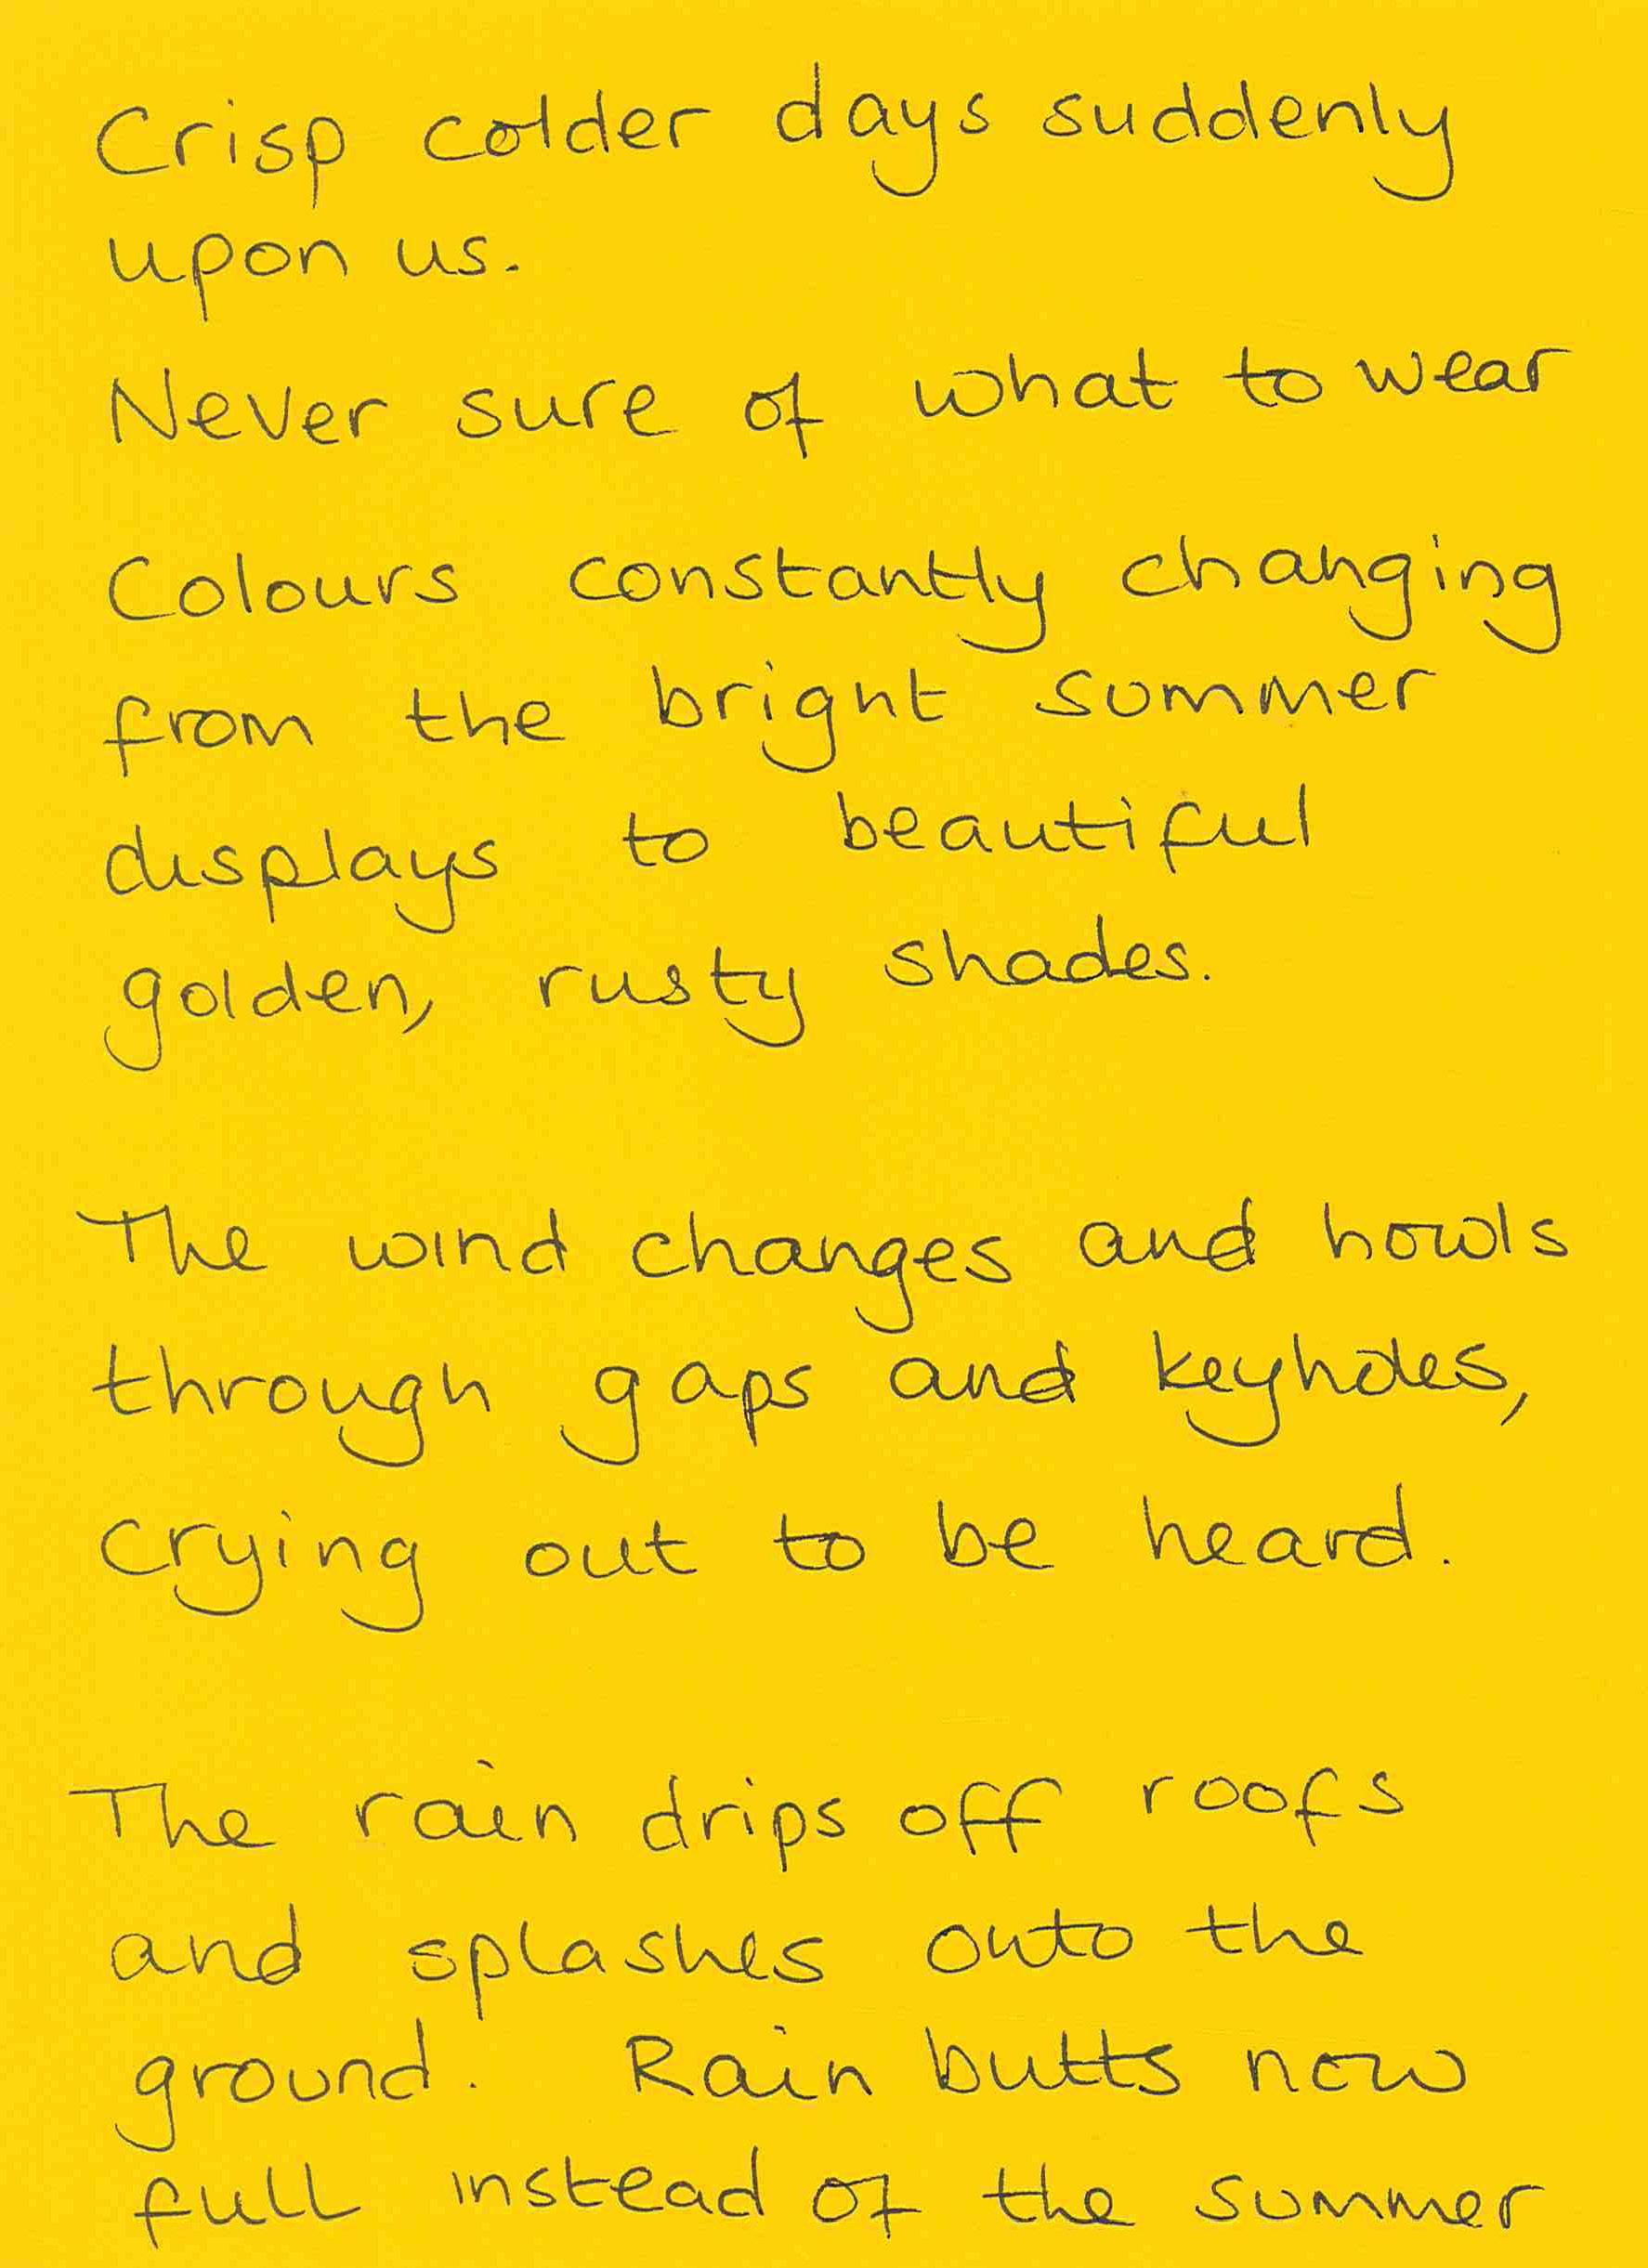 Crisp colder days suddenly
upon us.
Never sure of what to wear
Colours constantly changing
from the bright summer
displays to beautiful
golden, rusty shades.
The wind changes and howls
through gaps and keyholes,
crying out to be heard.
The rain drips off roofs
and splashes onto the
ground. Rain butts now
full instead of the summer